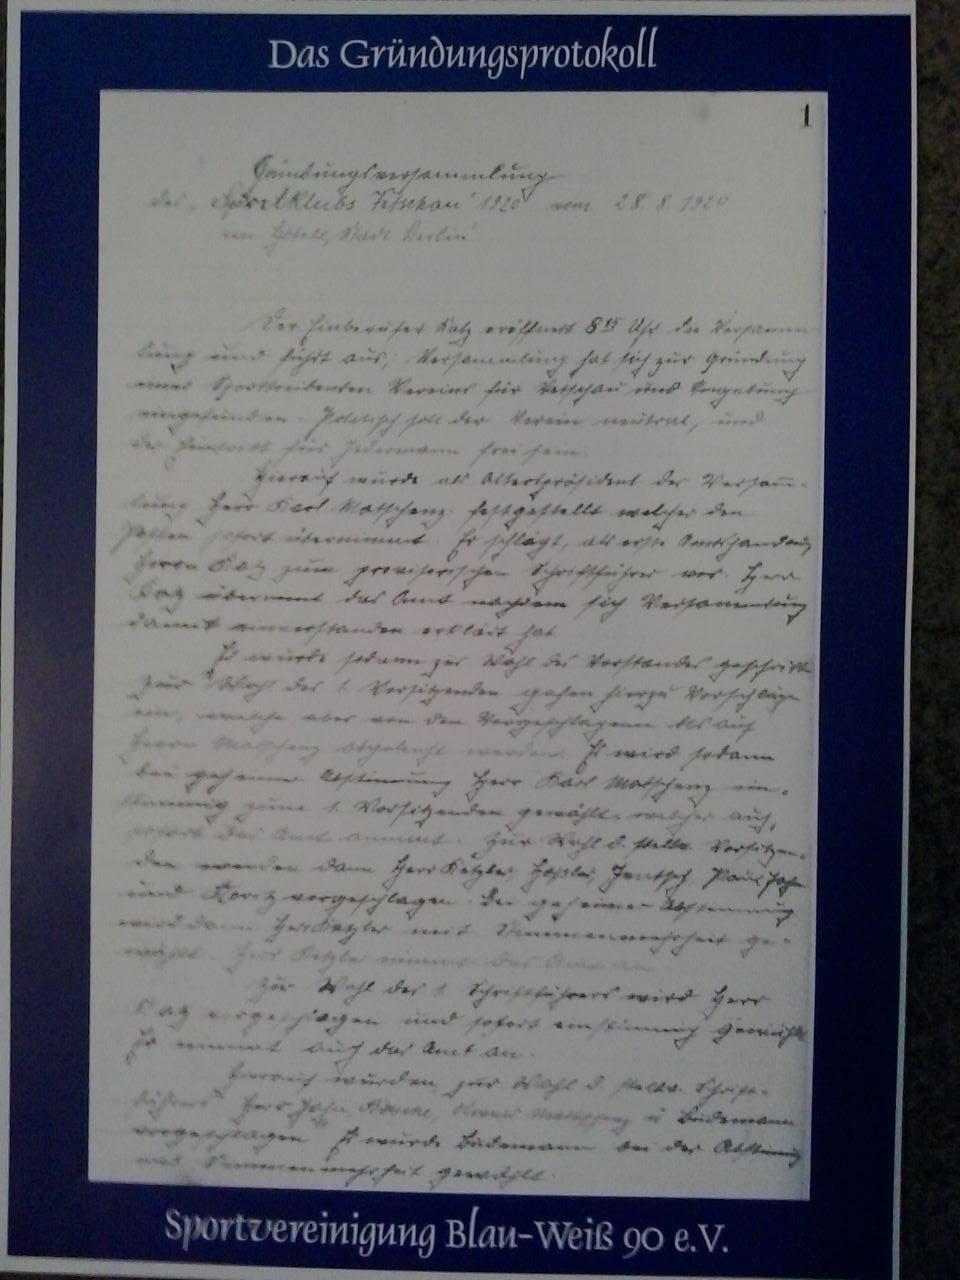 Das Gründungsprotokoll
1
Gründungsversammlung
des „Sportklubs Vetschau" 1920 vom 28 8 1920
im Hotell „Stadt Berlin"
Der Einberufer Katz eröffnett 8 15 Uhr die Versamm
lung und führt aus; Versammlung hat sich zur Gründung
eines Sporttreibenden Vereins für Vetschau und Umgebung
eingefunden. Politisch soll der Verein neutral, und
der Eintritt für Jedermann frei sein.
Hierauf wurde als Alterspräsident der Versamm-
lung Herr Karl Matschenz festgestellt welcher den
Posten sofort übernimmt. Er schlägt, als erste Amtshandlung
Herrn Katz zum provisorischen Schriftführer vor. Herr
Katz übernimt das Amt nachdem sich Versammlung
damit einverstanden erklärt hat
Es wurde sodann zur Wahl des Vorstandes geschritten
zur Wahl des 1. Vorsitzenden gehen hierzu Vorschläge
ein, welche aber von den Vorgeschlagenen bis auf
Herrn Matschenz abgelehnt werden. Es wird sodann
bei geheimer Abstimmung Herr Karl Matschenz ein-
stimmig zum 1. Vorsitzenden gewählt, welcher auch,
sofort das Amt annimmt. Zur Wahl d. stellv. Vorsitzen-
den werden dann Herr Ketzler, Jentsch, Paul Jahn
und vorgeschlagen. Bei geheimer Abstimmung
wird dann Herr Ketzler mit Stimmenmehrheit ge-
wählt. Herr Ketzler nimmt das Amt an
Zur Wahl des 1. Schriftführers wird Herr
Katz vorgeschlagen und sofort einstimmig gewählt
Er nimmt auch das Amt an.
Hierauf wurden zur Wahl d. stellv. Schrift-
führers Herr Jahn, Matschenz u Büdemann
vorgeschlagen Es wurde Büdemann bei der Abstimmung
mit Stimmenmehrheit gewählt.
Sportvereinigung Blau-Weiß 90 e.V.